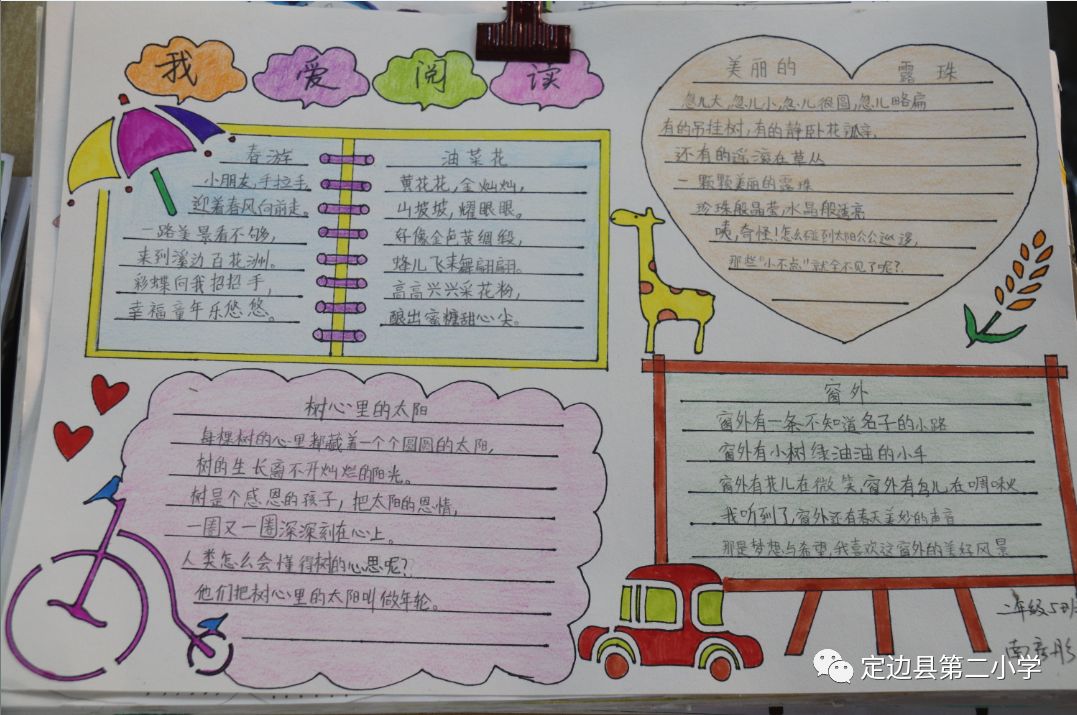 我爱阅读
春游
小朋友,手拉手,
迎着春风向前走。
一路美景看不够,
来到溪边百花洲。
彩蝶向我招招手,
幸福童年乐悠悠。
油菜花
黄花花,金灿灿,
山坡坡,耀眼眼。
好像金色黄绸缎,
蜂儿飞来舞翩翩。
高高兴兴采花粉,
酿出蜜糖甜心尖。
美丽的露珠
忽儿大,忽儿小,忽儿很圆,忽儿略扁
有的吊挂树,有的静卧花瓣,
还有的滚在草丛
一颗颗美丽的露珠
珍珠般晶莹,水晶般透亮
咦,奇怪!怎么碰到太阳公公
那些“小不点”就全不见了呢?
树心里的太阳
每棵树的心里都藏着一个个圆圆的太阳,
树的生长离不开灿烂的阳光。
树是个感恩的孩子,把太阳的恩情,
一圈又一圈深深刻在心上。
人类怎么会懂得树的心思呢?
他们把树心里的太阳叫做年轮。
窗外
窗外有一条不知道名子的小路
窗外有小树绿油油的小手
窗外有花儿在微笑,窗外有鸟儿在啁啾
我听到了,窗外还有春天美妙的声音
那是梦想与希望,我喜欢这窗外的美好风景
二年级5班
南彤
定边县第二小学